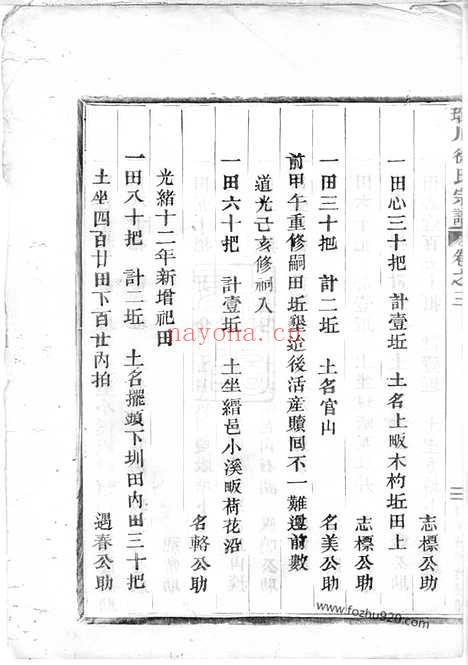 環川徐氏宗譜 卷之三
志標公助
一田心三十把 計壹坵 土名上畈木杓坵田上
志標公助
一田三十把 計二坵 土名官山
名美公助
前甲午重修嗣田坵墾近後活産贖回不一難遵前數
道光己亥修祠入
一田六十把 計壹坵 土坐縉邑小溪畈荷花沿
名輅公助
光緒十二年新增祀田
一田八十把 計二坵 土名擺頭下圳田內田三十把
土坐四百廿田下百廿內拍
遇春公助
nayona.cn
www.fozhu920.com